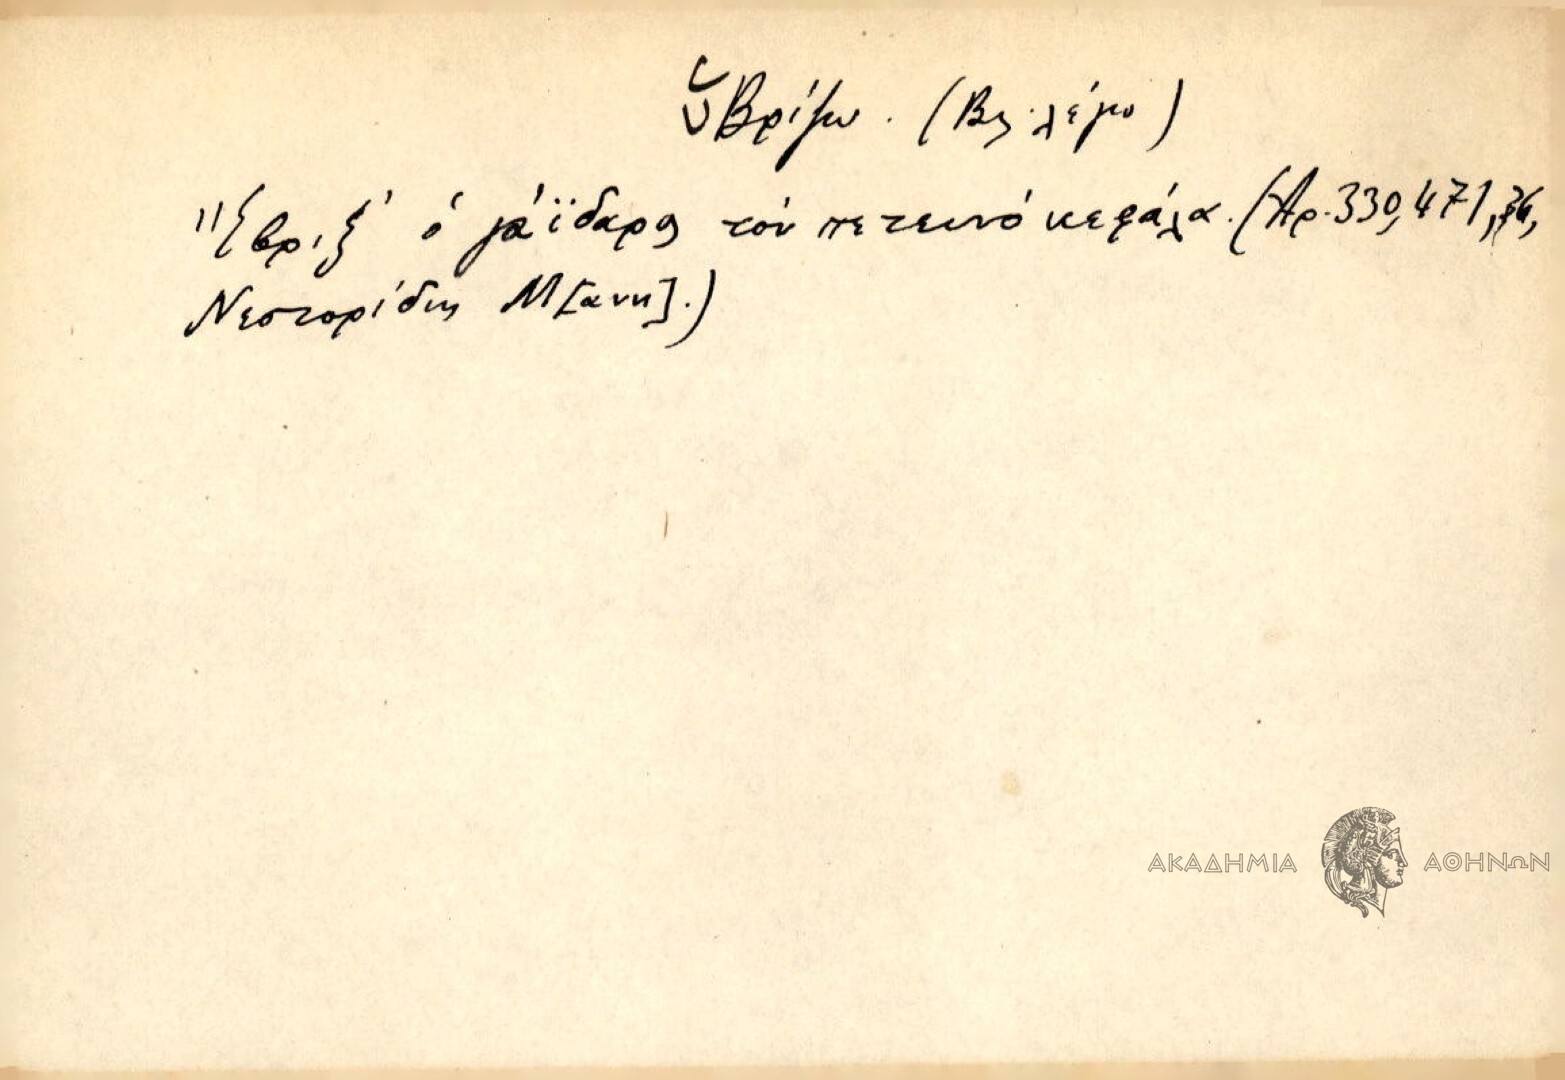 ὑβρίζω. (Βλ. λέγω)
Ἔβριξ' ὁ γάϊδαρος τὸν πετεινὸ κεφάλα. (Ἀρ. 330, 471, 36,
Νεστορίδης Μ[ανη].)
ΑΚΑΔΗΜΙΑ ΑΘΗΝΩΝ